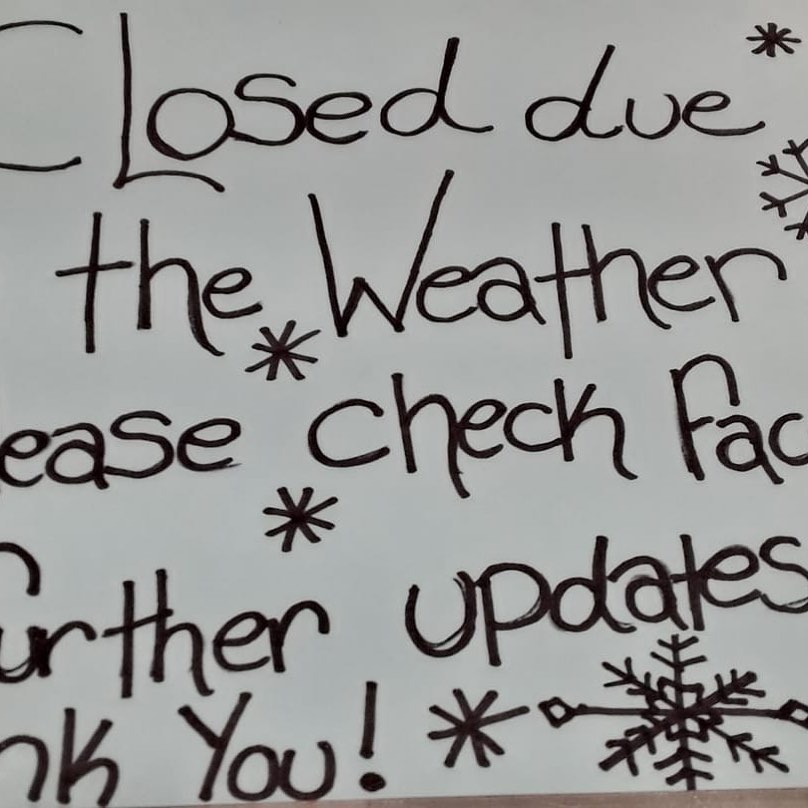 Closed due
the Weather
ease check Fac
further updates
nk You!